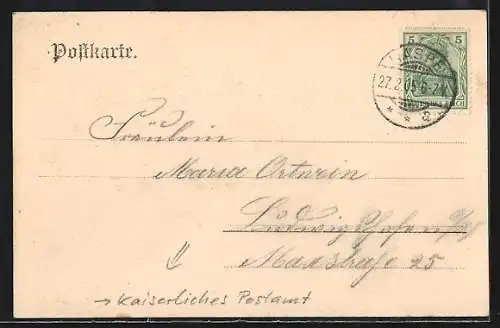 Postkarte.
5 5
27.2.05.6-7
* * 2
Fräulein
Maria Ortwin
Ludwigshafen a/R
Maxstraße 25
→ Kaiserliches Postamt